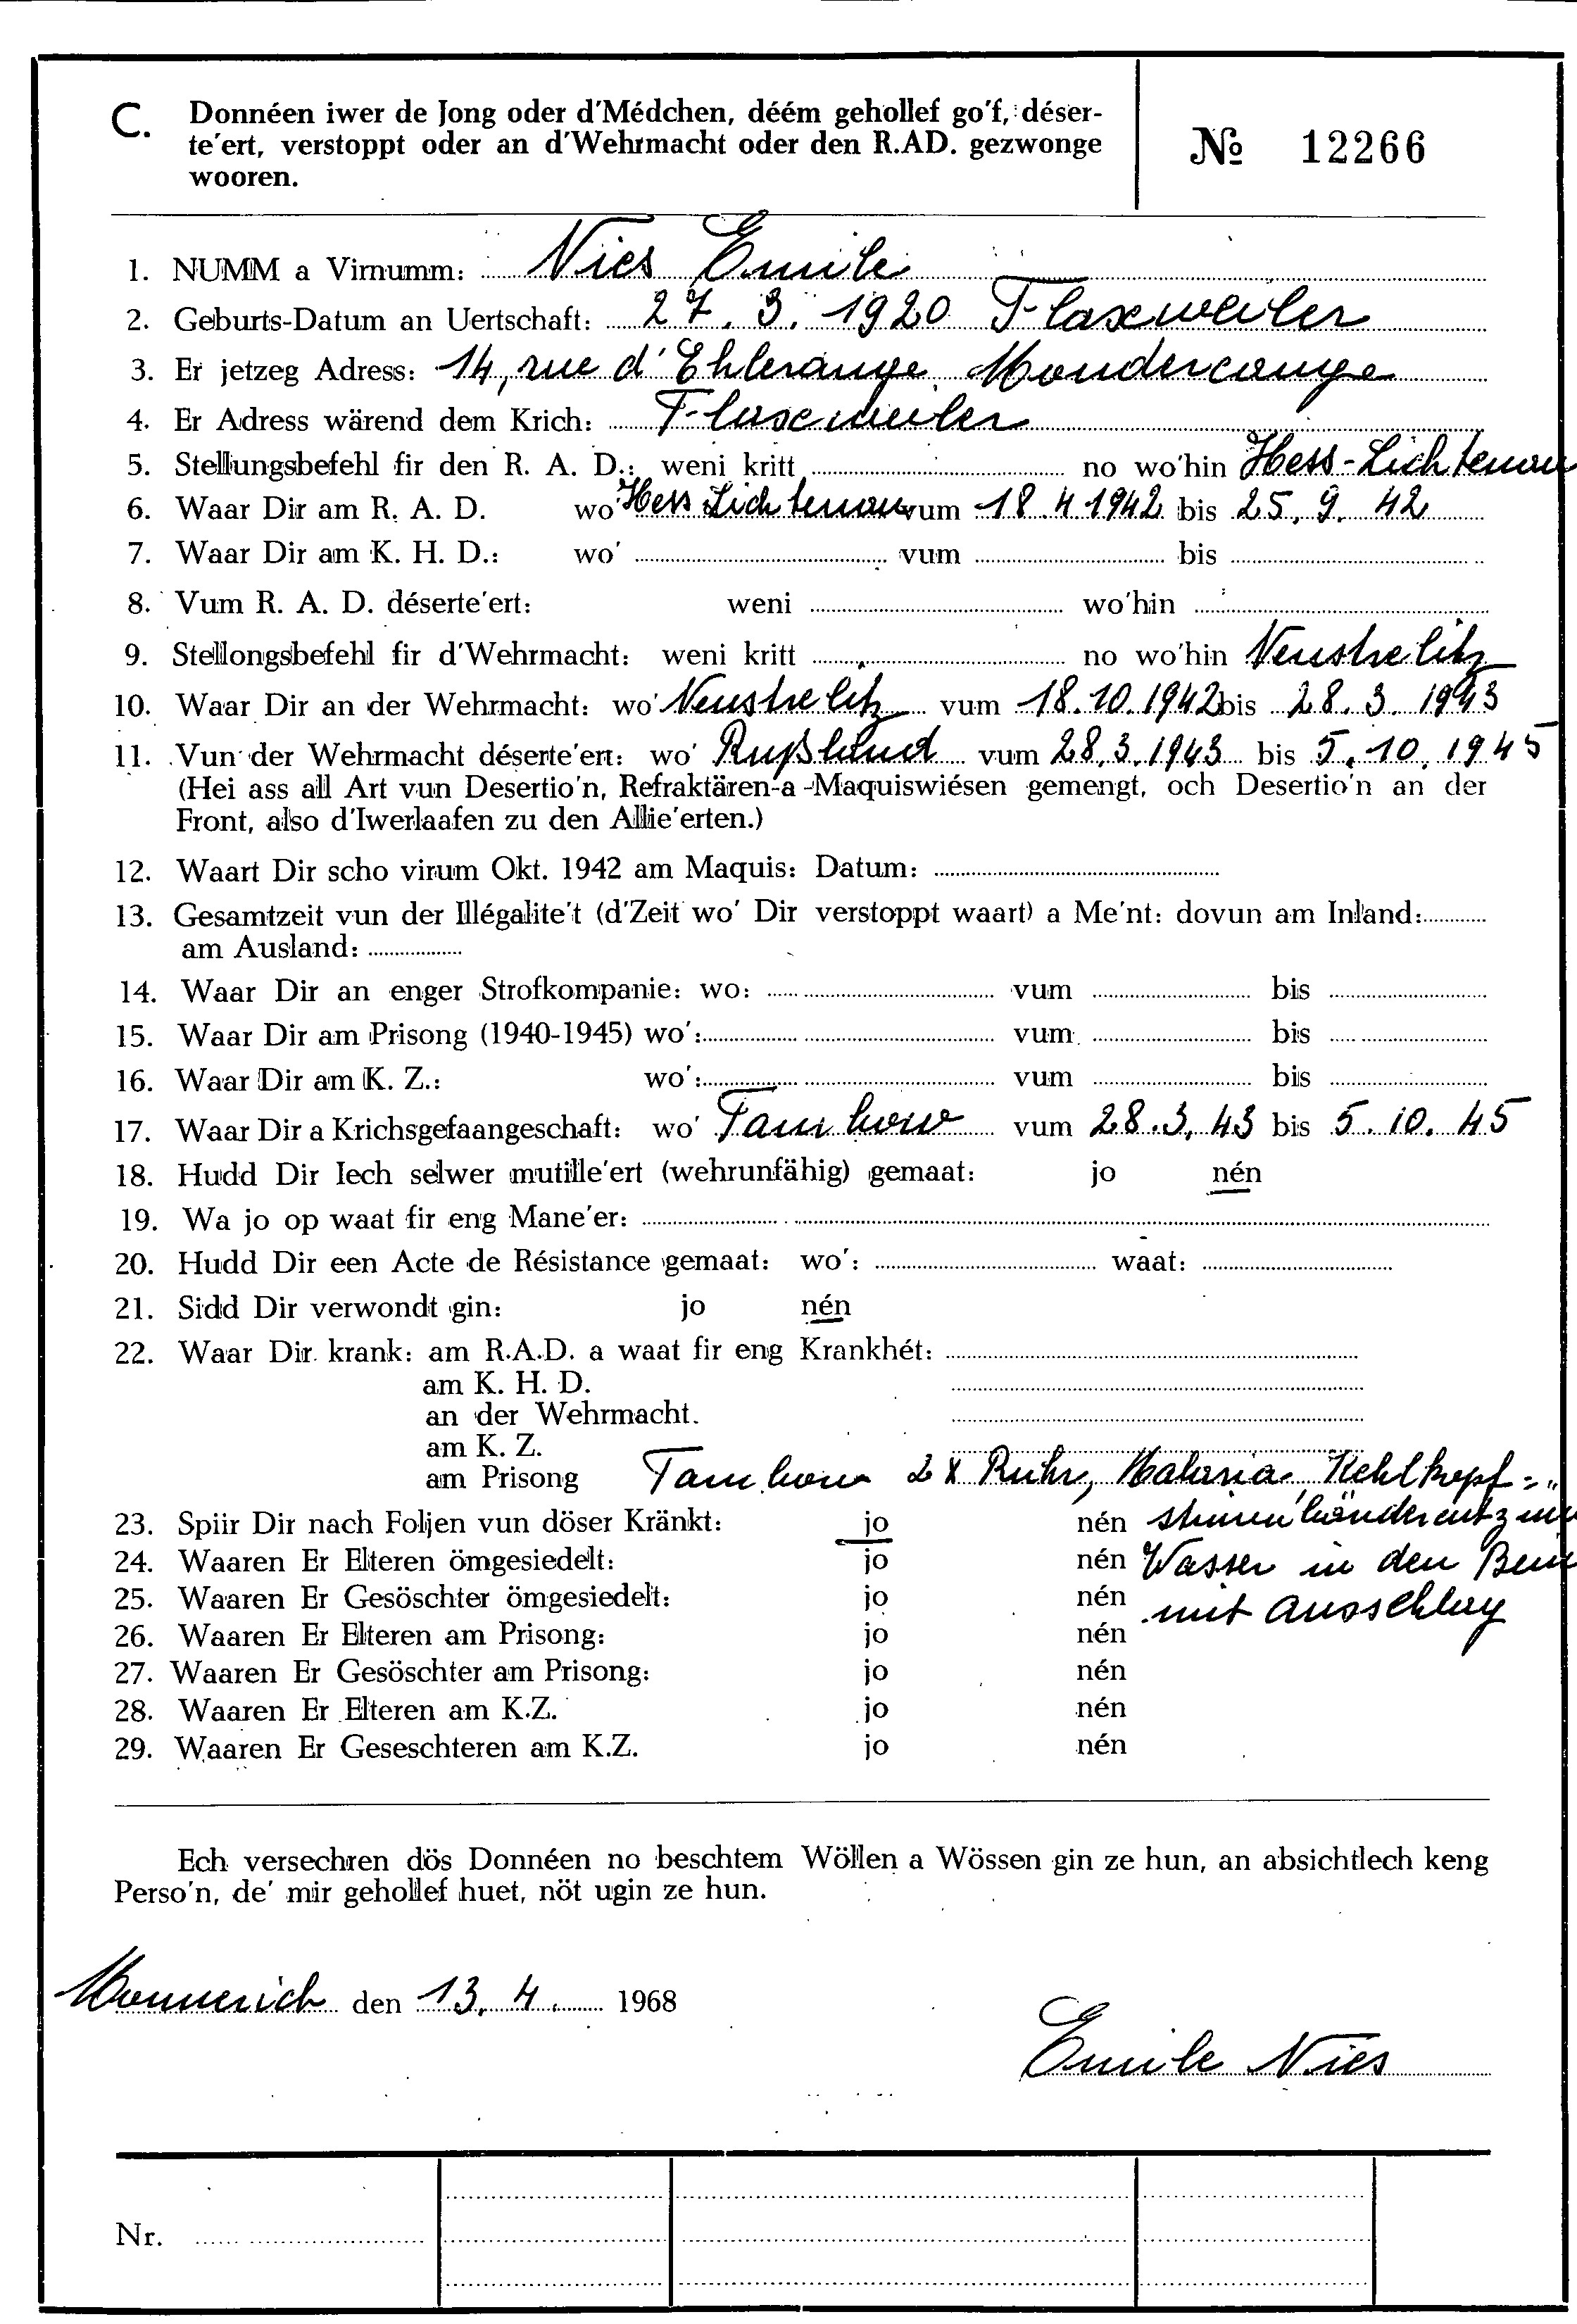 C. Donnéen iwer de Jong oder d'Médchen, déém gehollef go'f, déser-
te'ert, verstoppt oder an d'Wehrmacht oder den R.AD. gezwonge
wooren.
№ 12266
1. NUMM a Virnumm: Nies Emile
2. Geburts-Datum an Uertschaft: 27. 3. 1920 Flaxweiler
3. Er jetzeg Adress: 14, rue d'Ehlerange Mondercange
4. Er Adress wärend dem Krich: Flaxweiler
5. Stellungsbefehl fir den R. A. D.: weni kritt no wo'hin Hess-Lichtenau
6. Waar Dir am R. A. D. wo' Hess Lichtenau vum 18.4.1942 bis 25. 9. 42
7. Waar Dir am K. H. D.: wo' vum bis
8. Vum R. A. D. déserte'ert: weni wo'hin
9. Stellongsbefehl fir d'Wehrmacht: weni kritt no wo'hin Neustrelitz
10. Waar Dir an der Wehrmacht: wo' Neustrelitz vum 18.10.1942 bis 28. 3. 1943
11. Vun der Wehrmacht déserte'ert: wo' Rußland vum 28.3.1943 bis 5. 10. 1945
(Hei ass all Art vun Desertio'n, Refraktären-a-Maquiswiésen gemengt, och Desertio'n an der
Front, also d'Iwerlaafen zu den Allie'erten.)
12. Waart Dir scho virum Okt. 1942 am Maquis: Datum:
13. Gesamtzeit vun der Illégalite't (d'Zeit wo' Dir verstoppt waart) a Me'nt: dovun am Inland:
am Ausland:
14. Waar Dir an enger Strofkompanie: wo: vum bis
15. Waar Dir am Prisong (1940-1945) wo': vum bis
16. Waar Dir am K. Z.: wo': vum bis
17. Waar Dir a Krichsgefaangeschaft: wo' Tambow vum 28.3.43 bis 5. 10. 45
18. Hudd Dir Iech selwer mutille'ert (wehrunfähig) gemaat: jo nén
19. Wa jo op waat fir eng Mane'er:
20. Hudd Dir een Acte de Résistance gemaat: wo': waat:
21. Sidd Dir verwondt gin: jo nén
22. Waar Dir krank: am R.A.D. a waat fir eng Krankhét:
am K. H. D.
an der Wehrmacht.
am K. Z.
am Prisong Tambow 2 x Ruhr, Malaria, Kehlkopf=
23. Spiir Dir nach Foljen vun döser Kränkt: jo nén
24. Waaren Er Elteren ömgesiedelt: jo nén Wasser in den
25. Waaren Er Gesöschter ömgesiedelt: jo nén mit Ausschlag
26. Waaren Er Elteren am Prisong: jo nén
27. Waaren Er Gesöschter am Prisong: jo nén
28. Waaren Er Elteren am K.Z. jo nén
29. Waaren Er Geseschteren am K.Z. jo nén
Ech versechren dös Donnéen no beschtem Wöllen a Wössen gin ze hun, an absichtlech keng
Perso'n, de' mir gehollef huet, nöt ugin ze hun.
Monnerich den 13. 4. 1968
Emile Nies
Nr.